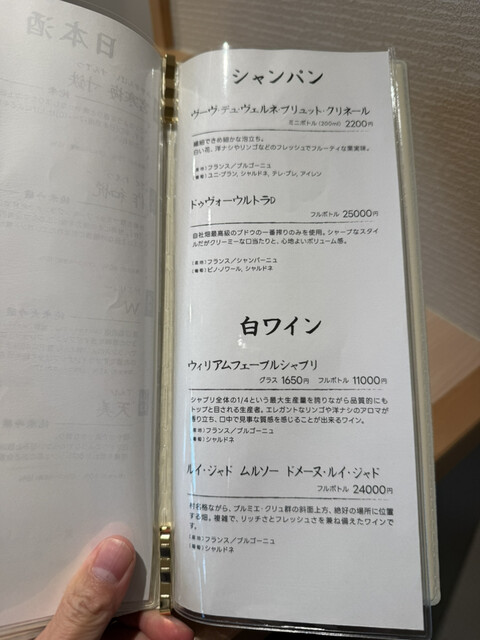 日本酒
シャンパン
ヴーヴ・デュ・ヴェルネ ブリュット・クリネール
ミニボトル(200ml) 2200円
繊細できめ細かな泡立ち。
白い花、洋ナシやリンゴなどのフレッシュでフルーティな果実味。
［産地］フランス／ブルゴーニュ
［葡萄］ユニ・ブラン、シャルドネ、テレ・ブレ、アイレン
ドゥヴォーウルトラD
フルボトル 25000円
自社畑最高級のブドウの一番搾りのみを使用。シャープなスタイ
ルだがクリーミーな口当たりと、心地よいボリューム感。
［産地］フランス／シャンパーニュ
［葡萄］ピノ・ノワール、シャルドネ
白ワイン
ウィリアムフェーブルシャブリ
グラス 1650円 フルボトル 11000円
シャブリ全体の1/4という最大生産量を誇りながら品質的にも
トップと目される生産者。エレガントなリンゴや洋ナシのアロマが
香り立ち、口中で見事な質感を感じることが出来るワイン。
［産地］フランス／ブルゴーニュ
［葡萄］シャルドネ
ルイ・ジャド ムルソー ドメーヌ・ルイ・ジャド
フルボトル 24000円
村名格ながら、プルミエ・クリュ群の斜面上方、絶好の場所に位置
する畑。複雑で、リッチさとフレッシュさを兼ね備えたワインで
す。
［産地］フランス／ブルゴーニュ
［葡萄］シャルドネ